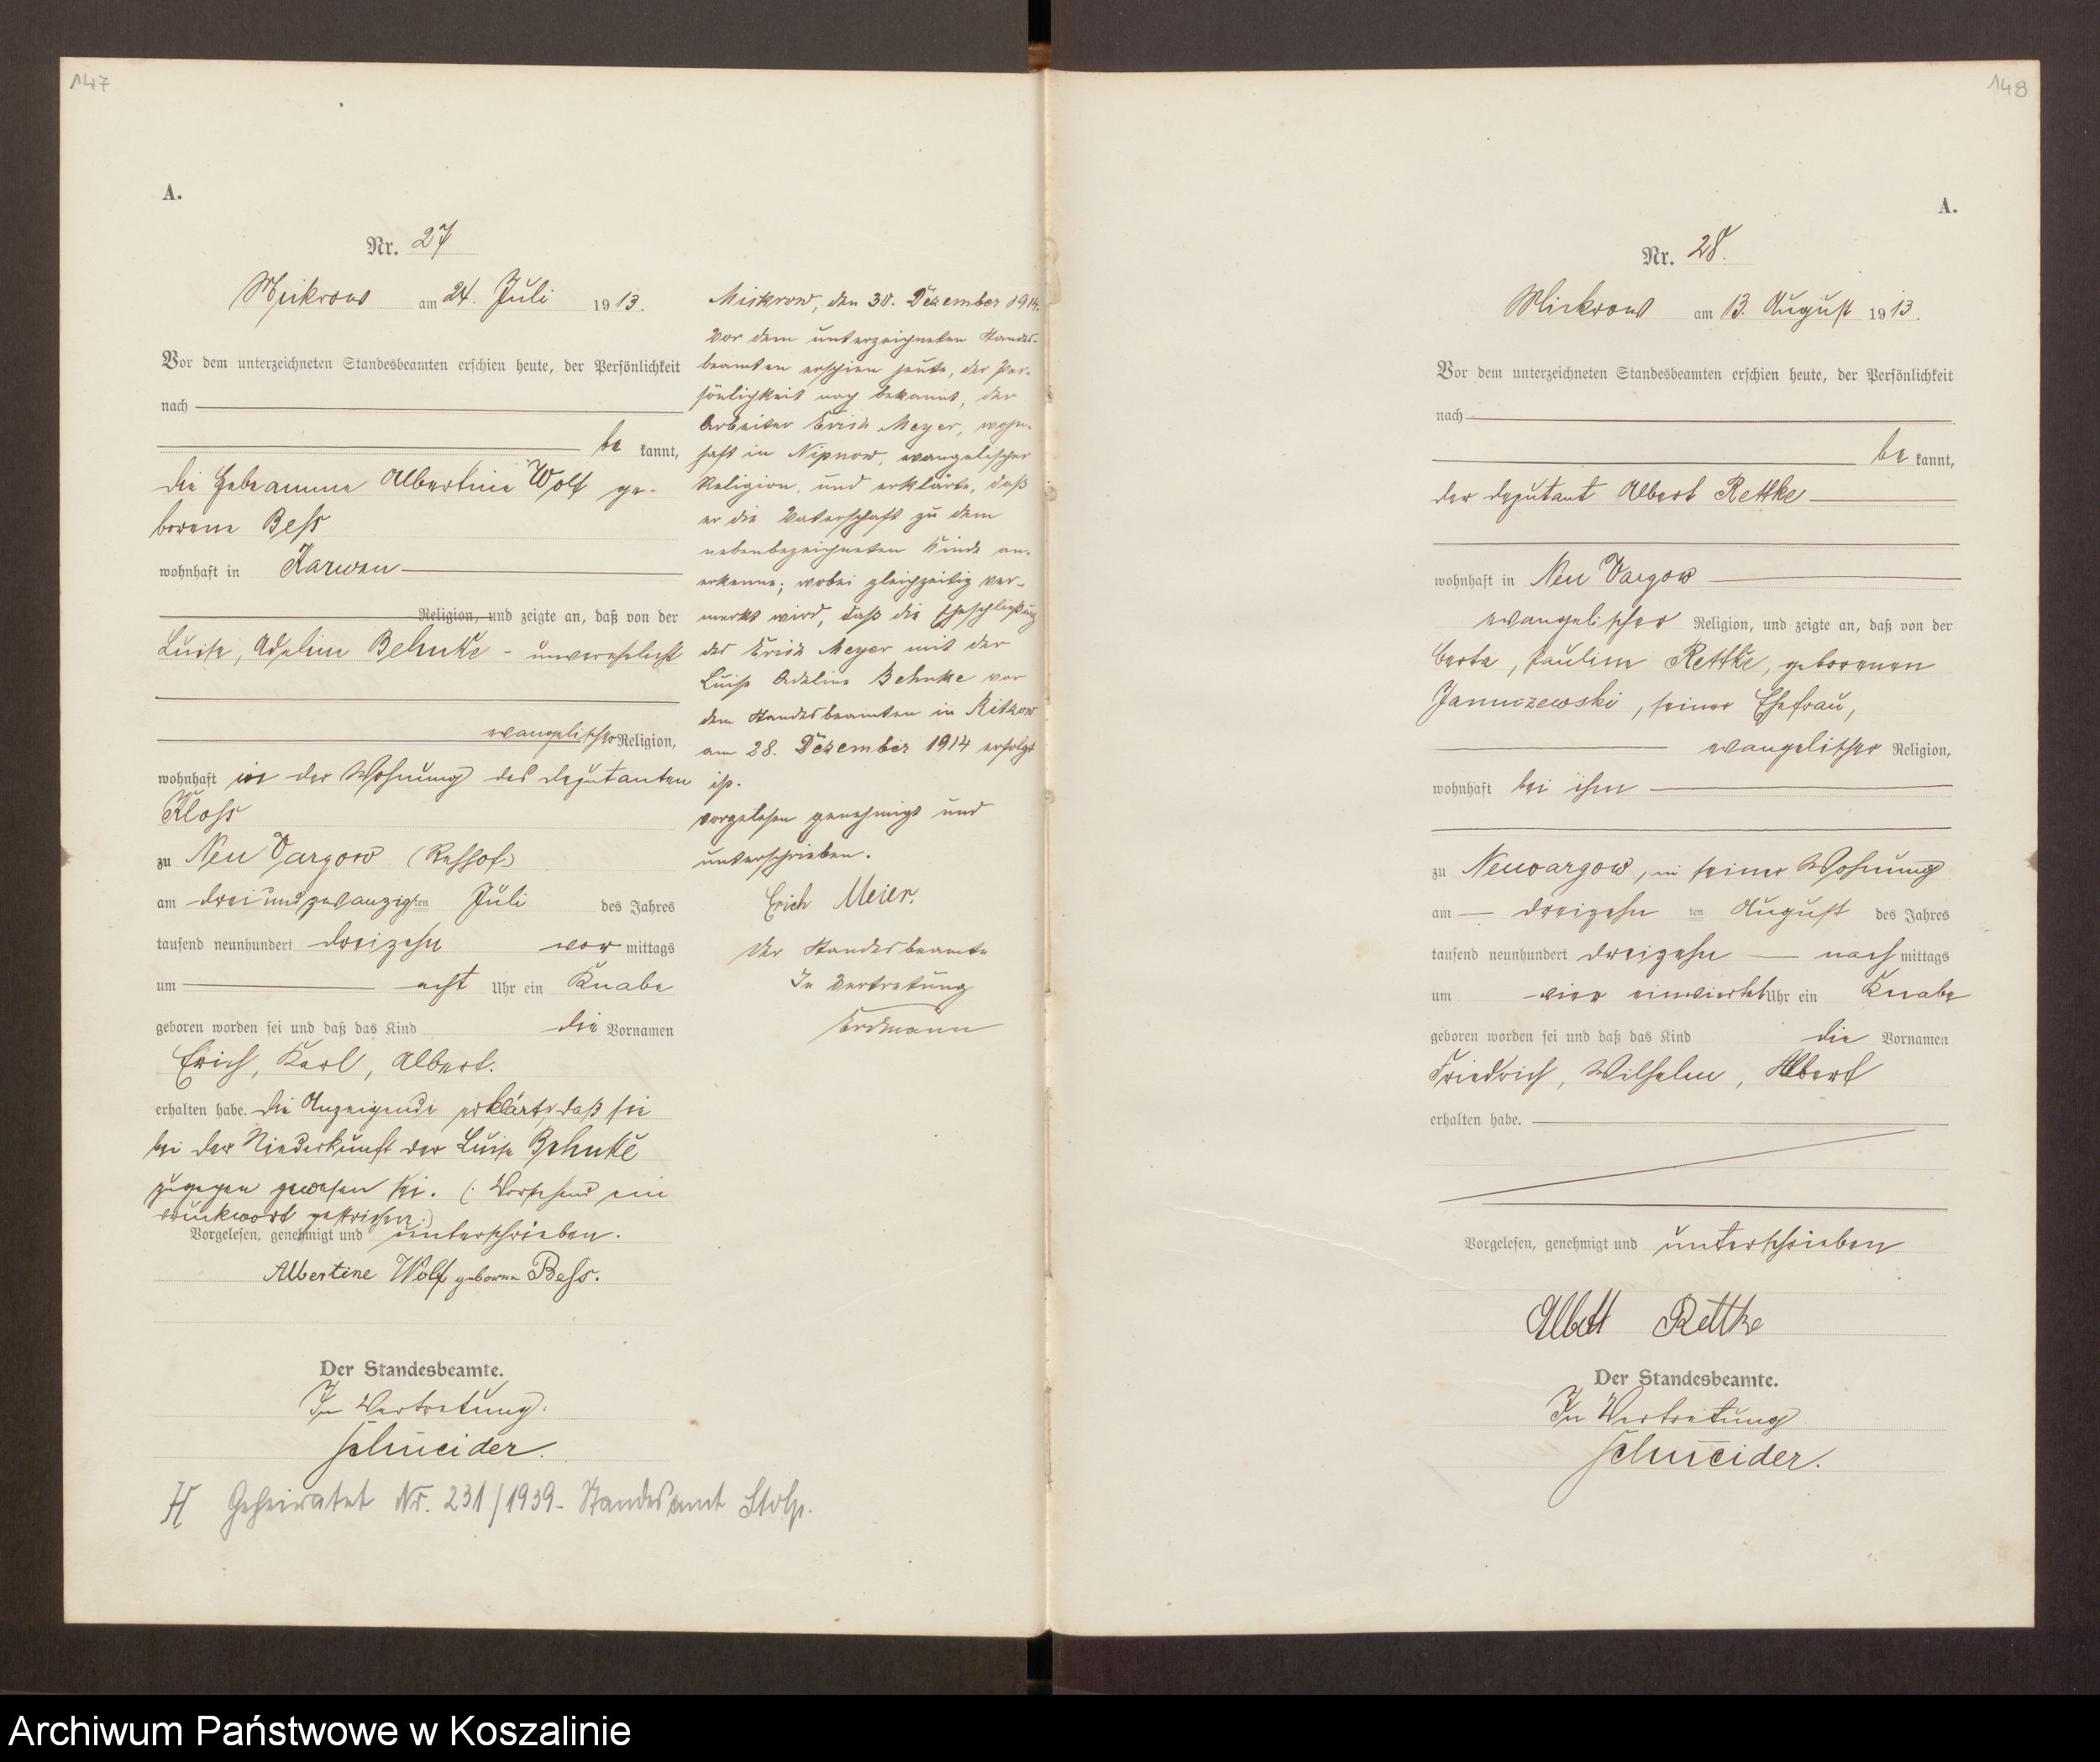 147
A.
Nr. 27
Mickrow am 24. Juli 1913.
Vor dem unterzeichneten Standesbeamten erschien heute, der Persönlichkeit
nach
be kannt,
die Hebeamme Albertine Wolf ge-
borene Bess
wohnhaft in Karwen
Religion, und zeigte an, daß von der
Luise, Adeline Behnke - unverehelicht
evangelischer Religion,
wohnhaft in der Wohnung des Deputanten
Kloss
zu Neu Vargow
am drei und zwanzigsten Juli des Jahres
tausend neunhundert dreizehn vor mittags
um acht Uhr ein Knabe
geboren worden sei und daß das Kind die Vornamen
Erich, Karl, Albert.
erhalten habe. Die Anzeigende erklärte, daß sie
bei der Niederkunft der Luise Behnke
zugegen gewesen sei. (: Vorstehend ein
Druckwort gestrichen :)
Vorgelesen, genehmigt und unterschrieben.
Albertine Wolf geborene Bess.
Der Standesbeamte.
In Vertretung:
Schneider.
H Geheiratet Nr. 231/1939 - Standesamt Stolp.
Mickrow, den 30. Dezember 1914.
Vor dem unterzeichneten Standes-
beamten erschien heute, der Per-
sönlichkeit nach bekannt, der
Arbeiter Erich Meyer, wohn-
haft in Nipnow, evangelischer
Religion, und erklärte, daß
er die Vaterschaft zu dem
nebenbezeichneten Kinde an-
erkenne; wobei gleichzeitig ver-
merkt wird, daß die Eheschließung
des Erich Meyer mit der
Luise Adeline Behnke vor
dem Standesbeamten in Ritzow
am 28. Dezember 1914 erfolgt
ist.
Vorgelesen genehmigt und
unterschrieben.
Erich Meier.
Der Standesbeamte
In Vertretung
Erdmann
148
A.
Nr. 28.
Mickrow am 13. August 1913.
Vor dem unterzeichneten Standesbeamten erschien heute, der Persönlichkeit
nach
be kannt,
der Deputant Albert Rettke
wohnhaft in Neu Vargow
evangelischer Religion, und zeigte an, daß von der
Berta, Pauline Rettke, geborenen
Januszewski, seiner Ehefrau,
evangelischer Religion,
wohnhaft bei ihm
zu Neuvargow, in seiner Wohnung
am dreizehn ten August des Jahres
tausend neunhundert dreizehn nach mittags
um vier einviertel Uhr ein Knabe
geboren worden sei und daß das Kind die Vornamen
Friedrich, Wilhelm, Albert
erhalten habe.
Vorgelesen, genehmigt und unterschrieben
Albert Rettke
Der Standesbeamte.
In Vertretung
Schneider.
Archiwum Państwowe w Koszalinie